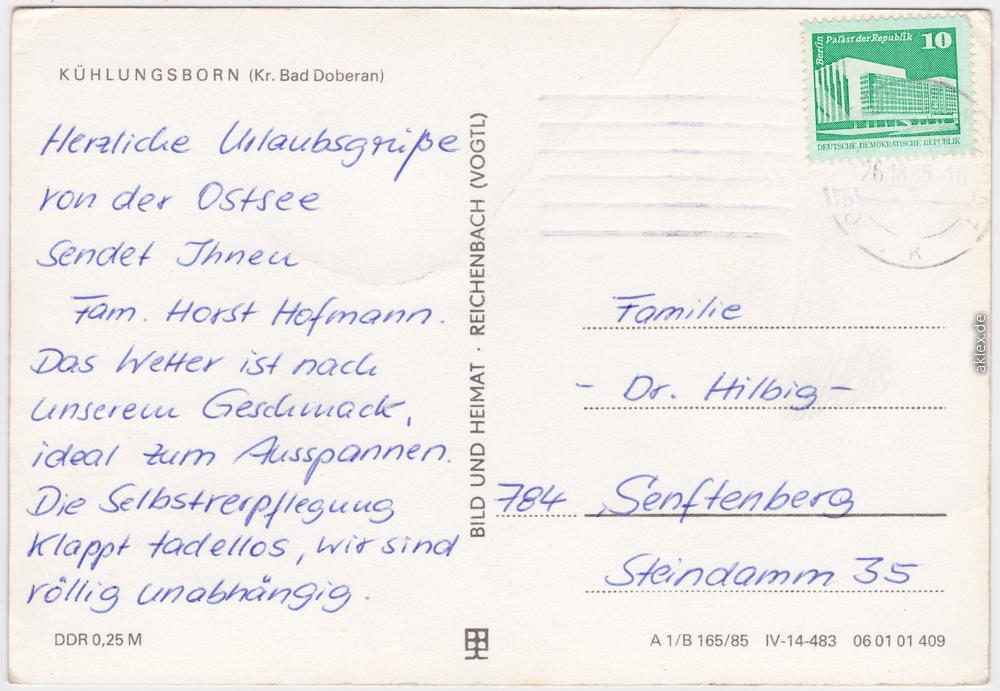 KÜHLUNGSBORN (Kr. Bad Doberan)
Herzliche Urlaubsgrüße
von der Ostsee
sendet Ihnen
Fam. Horst Hofmann.
Das Wetter ist nach
unserem Geschmack,
ideal zum Ausspannen.
Die Selbstverpflegung
klappt tadellos, wir sind
völlig unabhängig.
DDR 0,25 M
BILD UND HEIMAT · REICHENBACH (VOGTL)
Berlin Palast der Republik 10
DEUTSCHE DEMOKRATISCHE REPUBLIK
K
Familie
- Dr. Hilbig -
784 Senftenberg
Steindamm 35
A 1/B 165/85 IV-14-483 06 01 01 409
aklex.de